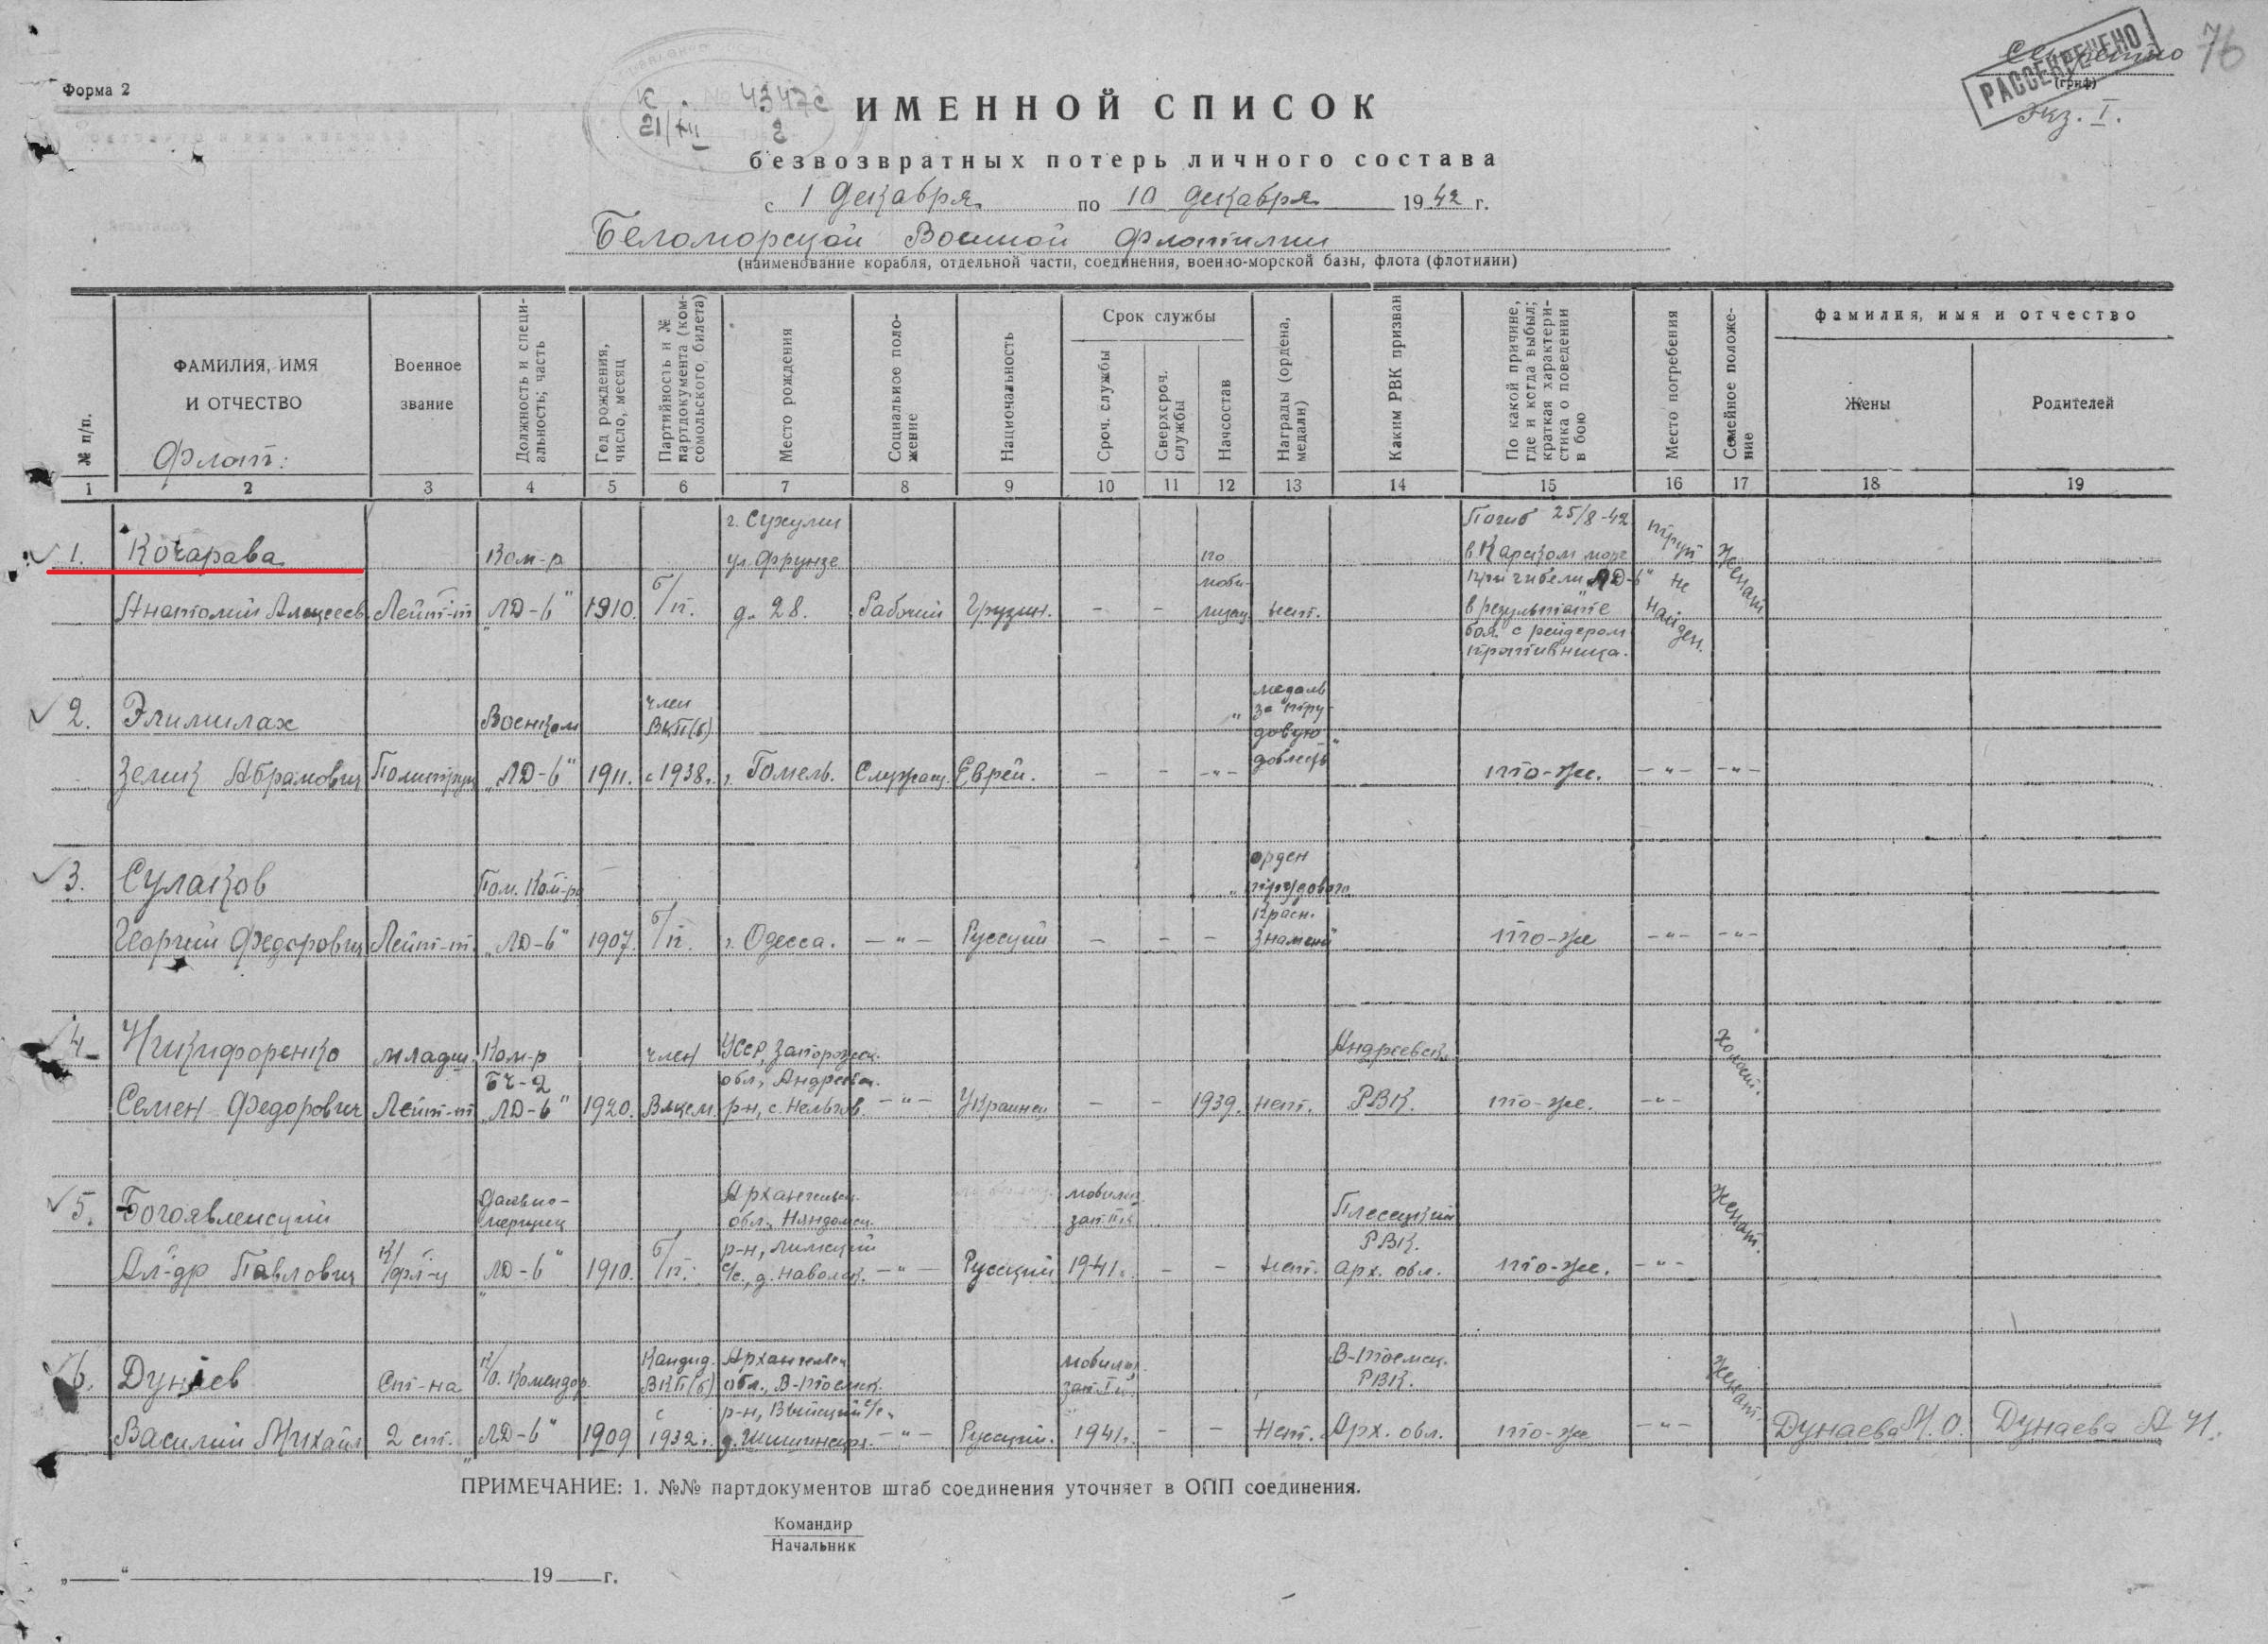 Форма 2
К № 4347с
21/XII 2
Секретно
РАССЕКРЕЧЕНО
(гриф)
Экз. I.
76
ИМЕННОЙ СПИСОК
безвозвратных потерь личного состава
с 1 декабря по 10 декабря 1942 г.
Беломорской Военной Флотилии
(наименование корабля, отдельной части, соединения, военно-морской базы, флота (флотилии)
№ п/п.
ФАМИЛИЯ, ИМЯ
И ОТЧЕСТВО
Флот:
Военное
звание
Должность и специ-
альность, часть
Год рождения,
число, месяц
Партийность и №
партдокумента (ком-
сомольского билета)
Место рождения
Социальное поло-
жение
Национальность
Срок службы
Сроч. службы
Сверхсроч.
службы
Начсостав
Награды (ордена,
медали)
Каким РВК призван
По какой причине,
где и когда выбыл;
краткая характери-
стика о поведении
в бою
Место погребения
Семейное положе-
ние
фамилия, имя и отчество
Жены
Родителей
1 2 3 4 5 6 7 8 9 10 11 12 13 14 15 16 17 18 19
1. Кочарава
Анатолий Алексеев.
Лейт-т
Ком-р
"ЛД-6"
1910.
б/п.
г. Сухуми
ул. Фрунзе
д. 28.
Рабочий
Грузин.
–
–
по
моби-
лизац.
нет.
Погиб 25/8-42
в Карском море
при гибели "ЛД-6"
в результате
боя с рейдером
противника.
труп
не
найден.
Женат.
2. Элимилах
Зелик Абрамович
Политрук
Военком
"ЛД-6"
1911.
член
ВКП(б)
с 1938 г.
г. Гомель.
Служащ.
Еврей.
–
–
–"–
медаль
"за тру-
довую
доблесть"
то-же.
–"–
–"–
3. Сулаков
Георгий Федорович
Лейт-т
Пом. Ком-ра
"ЛД-6"
1907.
б/п.
г. Одесса.
–"–
Русский
–
–
–
орден
"трудового
Красн.
Знамени"
то-же
–"–
–"–
4. Никифоренко
Семен Федорович
младш.
Лейт-т
Ком-р
БЧ-2
"ЛД-6"
1920.
член
Влксм.
УССР, Запорожск.
обл., Андреевск.
р-н,
–"–
Украинец
–
–
1939.
нет.
Андреевск.
РВК.
то-же.
–"–
Холост.
5. Богоявленский
Ал-др Павлович
к/фл-ц
Дально-
мерщик
"ЛД-6"
1910.
б/п.
Архангельск.
обл., Няндомск.
р-н, Лимский
с/с., д. Наволок.
–"–
Русский
мобилиз.
1941 г.
–
–
Нет.
Плесецкий
РВК.
Арх. обл.
то-же.
–"–
Женат.
6. Дунаев
Василий Михайл
Ст-на
2 ст.
Комендор
"ЛД-6"
1909
Кандид.
ВКП(б)
с
1932 г.
Архангельск
обл., В-Тоемск.
р-н, Выйский с/с.,
–"–
Русский.
мобилиз.
1941 г.
–
–
Нет.
В-Тоемск.
РВК.
Арх. обл.
то-же
–"–
Женат.
Дунаева М. О.
Дунаева А. И.
ПРИМЕЧАНИЕ: 1. №№ партдокументов штаб соединения уточняет в ОПП соединения.
Командир
Начальник
„ “ 19 г.